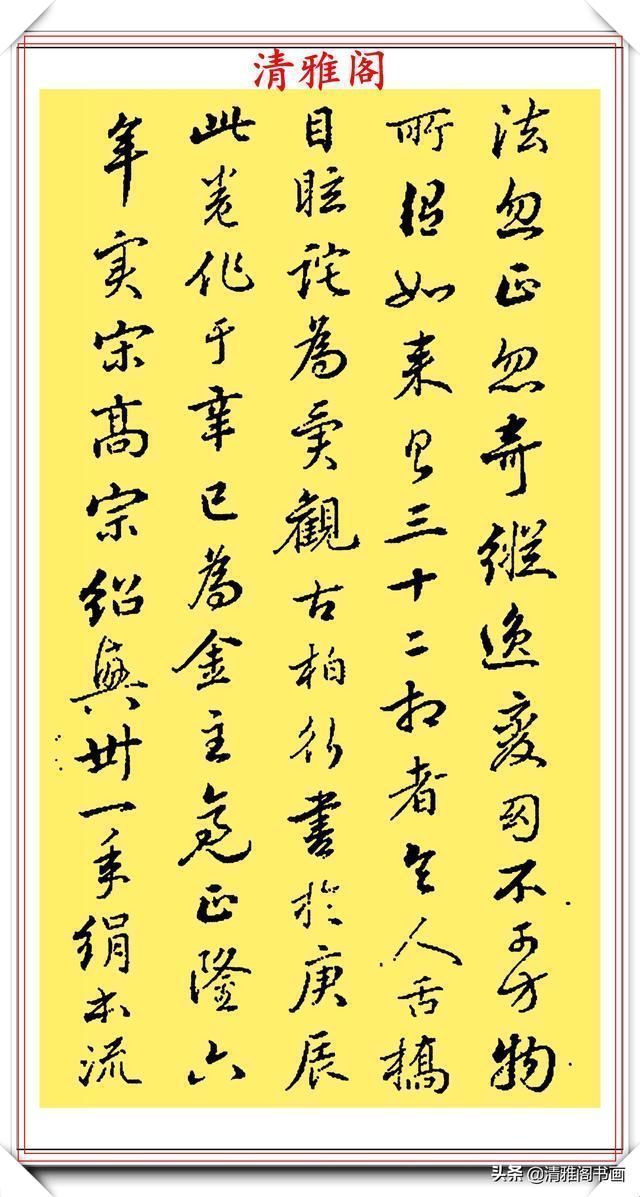 清雅阁
法忽正忽奇縱逸变幻不可方物
所謂如来具三十二相者令人舌撟
目眩詫為異觀古柏行書於庚辰
此卷作于辛巳為金主亮正隆六
年实宋高宗紹興卅一年絹本流
头条 @清雅阁书画